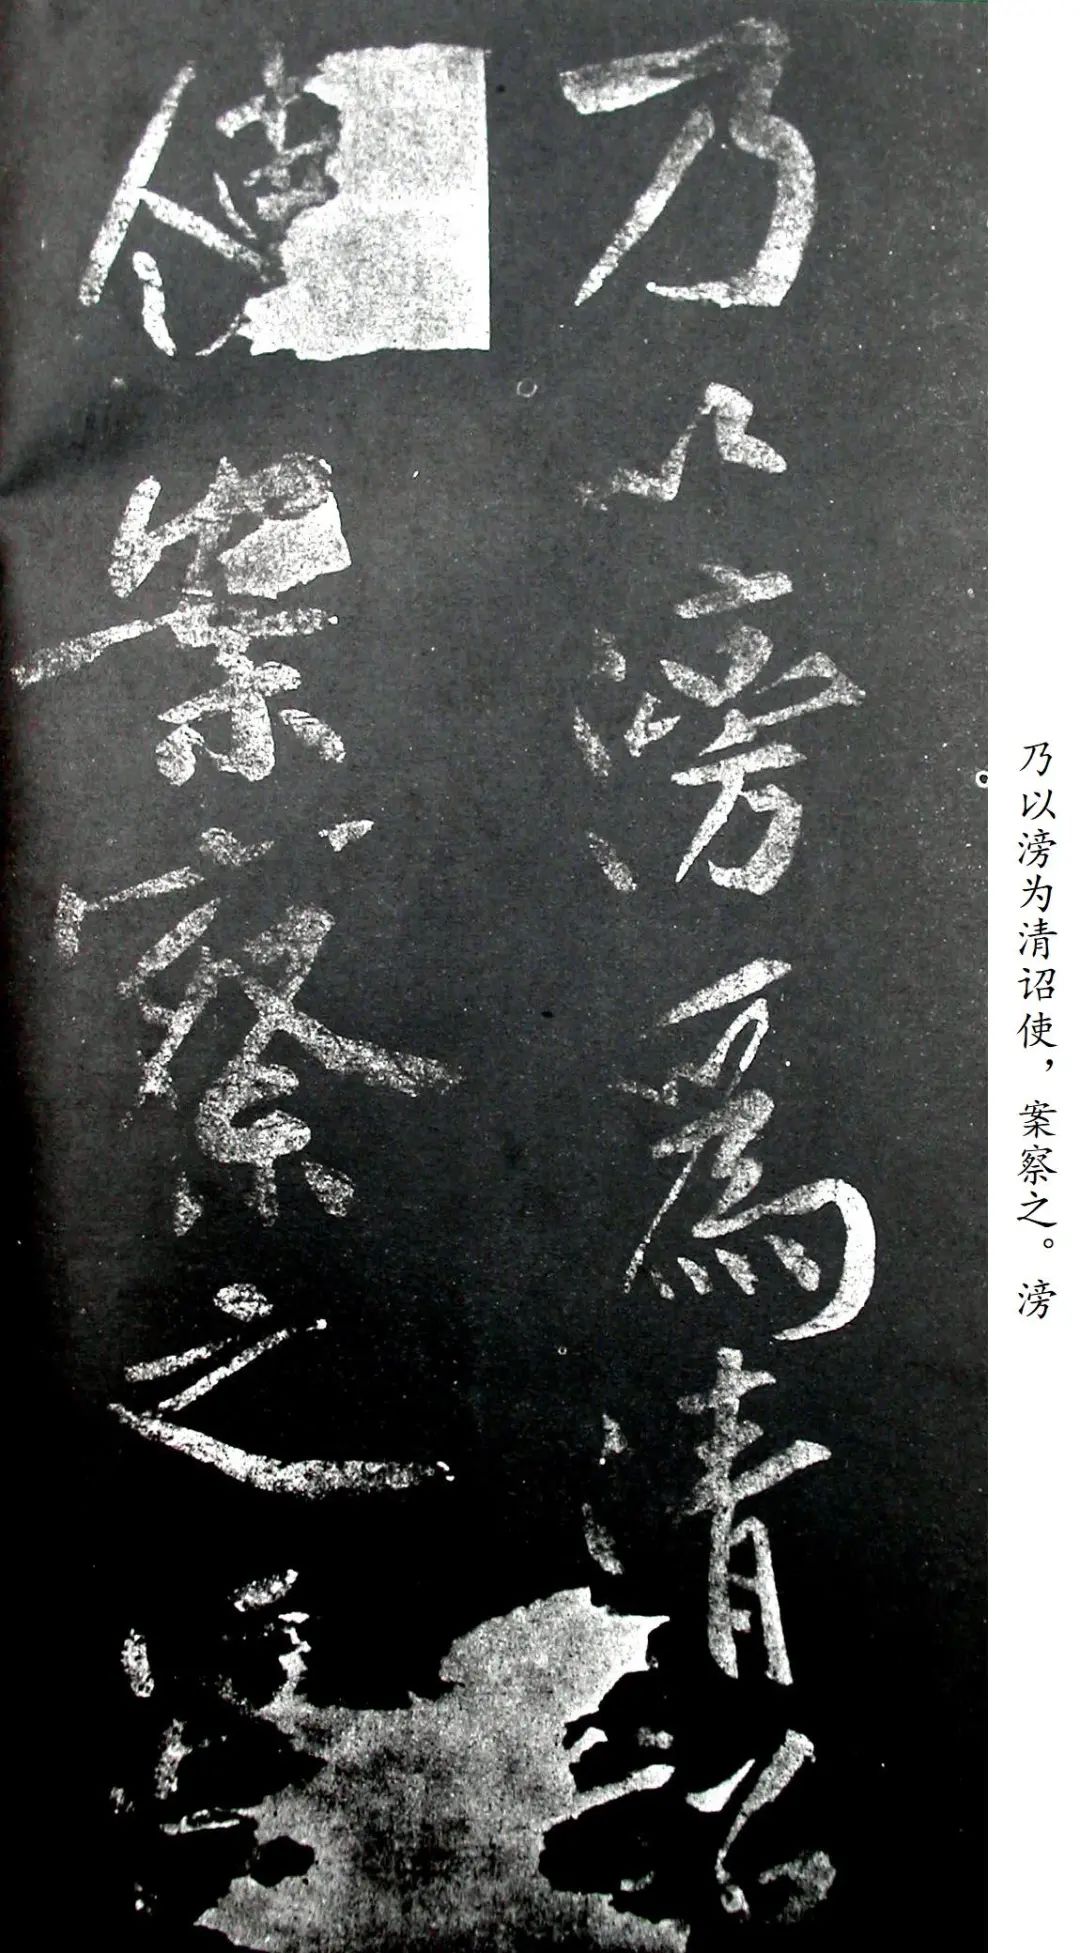 乃以滂為清詔
使案察之滂
乃以滂为清诏使，案察之。滂